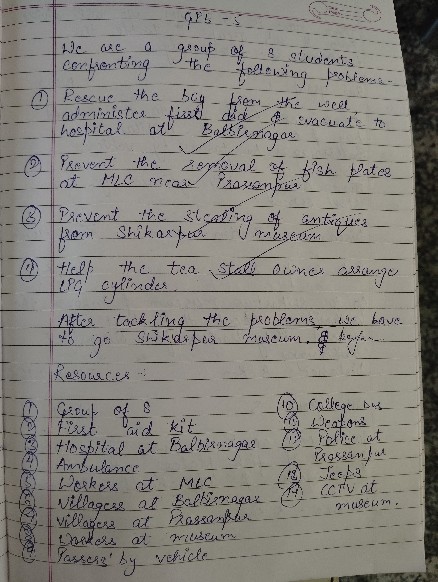 GPE - 5
We are a group of 8 students
confronting the following problems-
① Rescue the boy from the well
administer first aid & evacuate to
hospital at Balbirnagar
② Prevent the removal of fish plates
at MLC near Prasanpur
③ Prevent the stealing of antiques
from Shikarpur museum
④ Help the tea stall owner arrange
LPG cylinder.
After tackling the problems, we have
to go Shikarpur museum. &
Resources :-
Group of 8
First aid kit
Hospital at Balbirnagar
Ambulance
Workers at MLC
Villagers at Balbirnagar
Villagers at Prasanpur
Workers at museum
Passers by vehicle
⑩ College bus
Weapons
Police at
Prasanpur
Jeeps
⑭ CCTV at
museum.